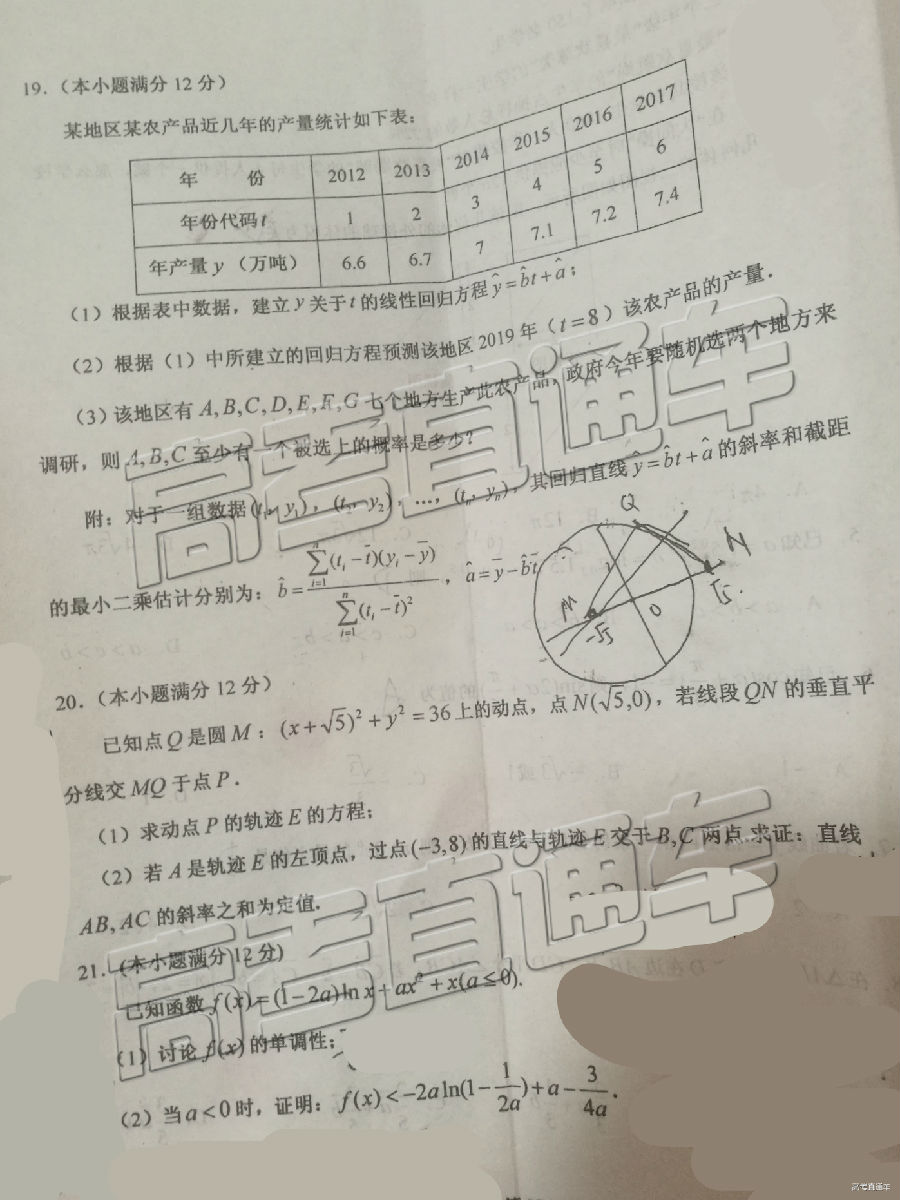 19.（本小题满分 12 分）
某地区某农产品近几年的产量统计如下表：
年 份 2012 2013 2014 2015 2016 2017
年份代码 t 1 2 3 4 5 6
年产量 y（万吨） 6.6 6.7 7 7.1 7.2 7.4
（1）根据表中数据，建立 y 关于 t 的线性回归方程 ŷ = b̂t + â；
（2）根据（1）中所建立的回归方程预测该地区 2019 年（t = 8）该农产品的产量．
（3）该地区有 A, B, C, D, E, F, G 七个地方生产此农产品，政府今年要随机选两个地方来
调研，则 A, B, C 至少有一个被选上的概率是多少？
附：对于一组数据 (t₁, y₁)，(t₂, y₂)，…，(tₙ, yₙ)，其回归直线 ŷ = b̂t + â 的斜率和截距
的最小二乘估计分别为：b̂ = ∑ᵢ₌₁ⁿ(tᵢ − t̄)(yᵢ − ȳ) / ∑ᵢ₌₁ⁿ(tᵢ − t̄)²，â = ȳ − b̂t̄
Q
N
M
O
-√5
√5
20.（本小题满分 12 分）
已知点 Q 是圆 M：(x + √5)² + y² = 36 上的动点，点 N(√5,0)，若线段 QN 的垂直平
分线交 MQ 于点 P．
（1）求动点 P 的轨迹 E 的方程；
（2）若 A 是轨迹 E 的左顶点，过点 (−3,8) 的直线与轨迹 E 交于 B, C 两点.求证：直线
AB, AC 的斜率之和为定值.
21.（本小题满分 12 分）
已知函数 f(x) = (1 − 2a) ln x + ax² + x(a ≤ 0).
（1）讨论 f(x) 的单调性；
（2）当 a < 0 时，证明：f(x) < −2a ln(1 − 1/2a) + a − 3/4a．
高考直通车
高考直通车
高考直通车